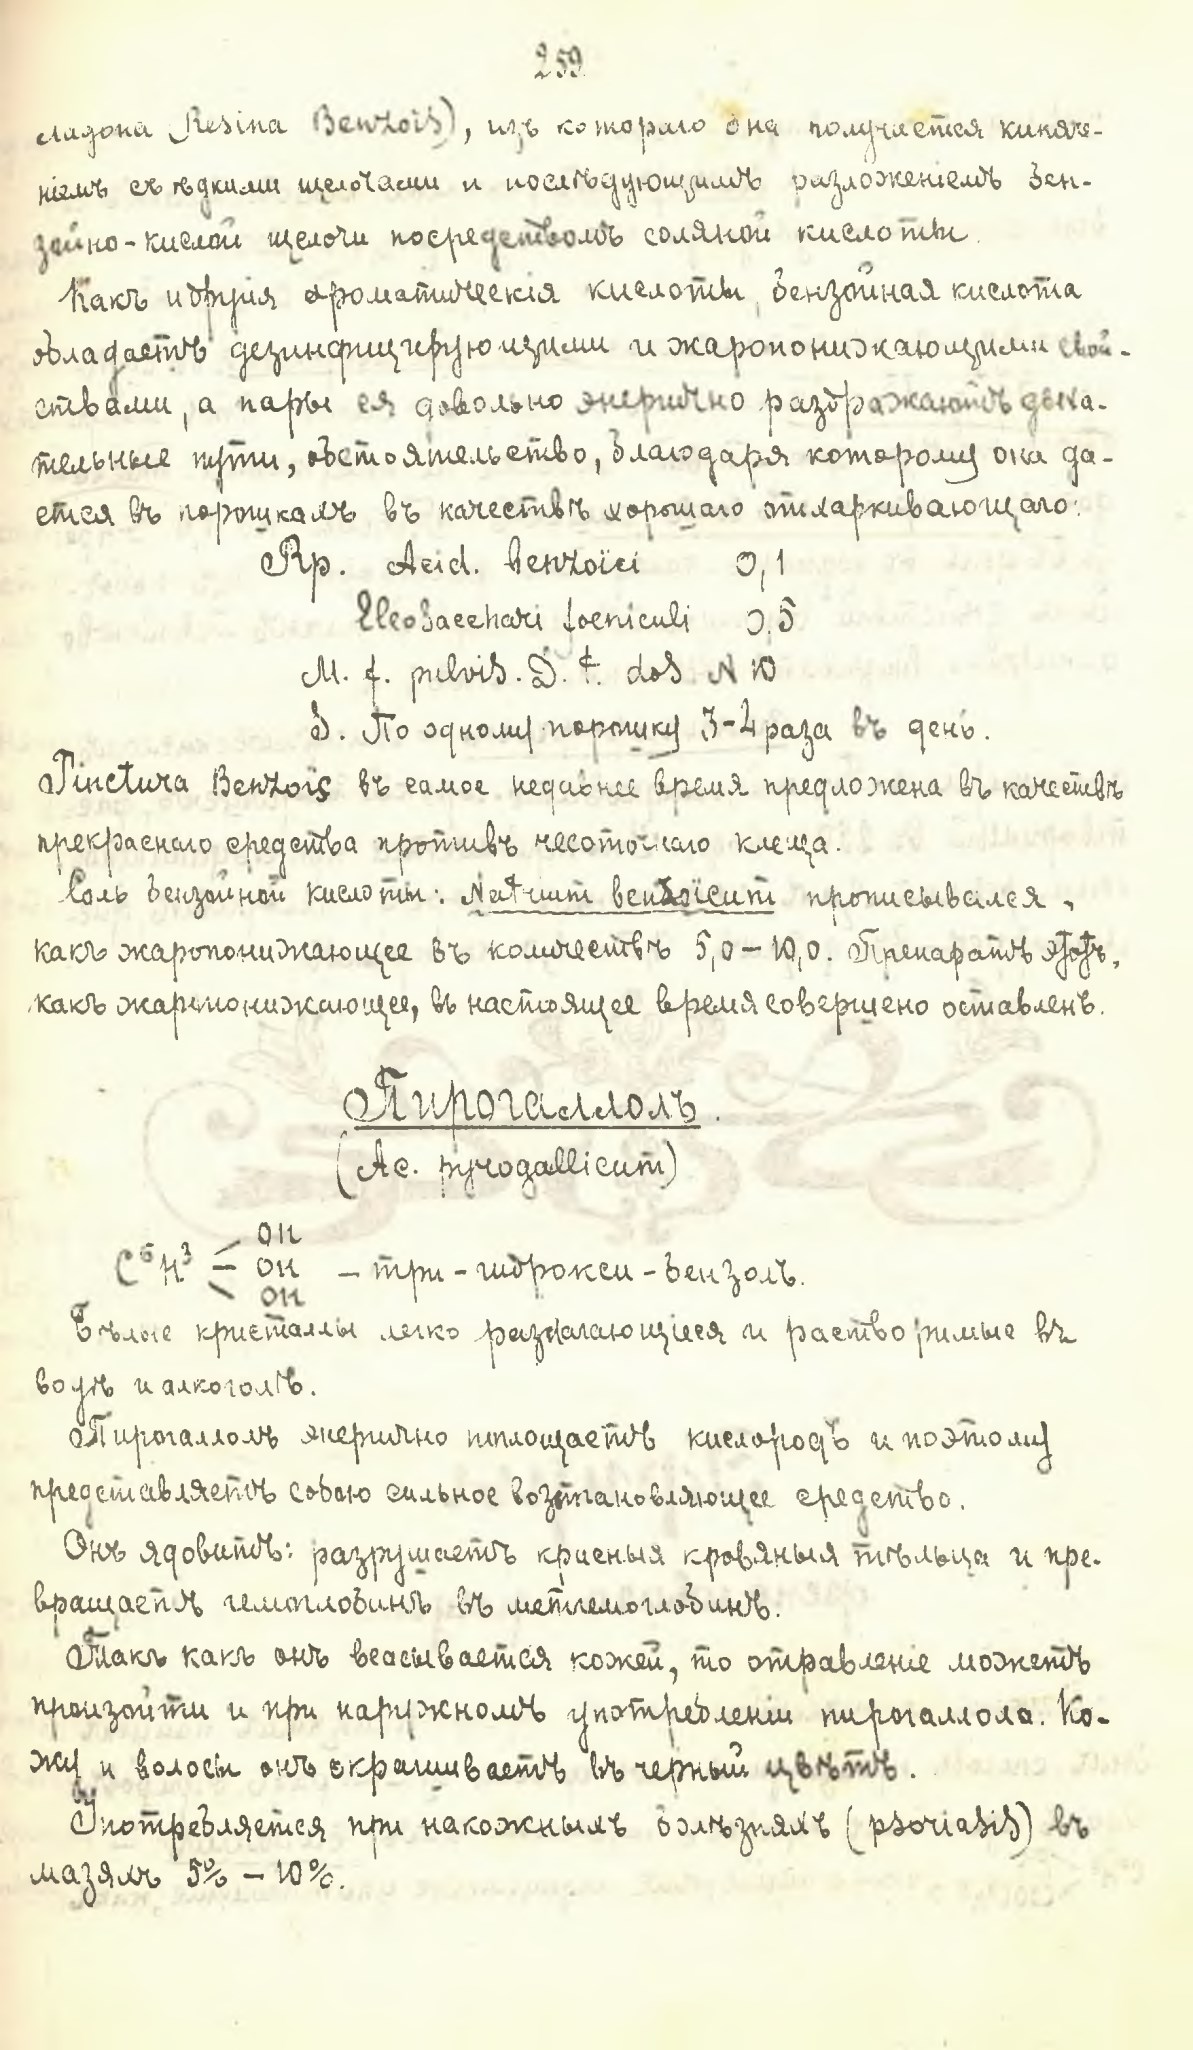 259
ладона Resina Benzois), изъ котораго она получается кипяче-
ніемъ съ ѣдкими щелочами и послѣдующимъ разложеніемъ бен-
зойно-кислой щелочи посредствомъ соляной кислоты.
Какъ и другія ароматическія кислоты, бензойная кислота
обладаетъ дезинфицирующими и жаропонижающими свой-
ствами, а пары ея довольно энергично раздражаютъ дыха-
тельные пути, обстоятельство, благодаря которому она да-
ется въ порошкахъ въ качествѣ хорошаго отхаркивающаго:
Rp. Acid. benzoici 0,1
Eleosacchari foeniculi 0,5
M. f. pulvis. D. t. dos N 10
S. По одному порошку 3-4 раза въ день.
Tinctura Benzois въ самое недавнее время предложена въ качествѣ
прекраснаго средства противъ чесоточнаго клеща.
Соль бензойной кислоты: Natrium benzoicum прописывался,
какъ жаропонижающее въ количествѣ 5,0 – 10,0. Препаратъ этотъ,
какъ жаропонижающее, въ настоящее время совершено оставленъ.
Пирогаллолъ.
(Ac. pyrogallicum)
OH
C⁶H³ – OH – три-гидрокси-бензолъ.
OH
Бѣлые кристаллы легко разлагающіеся и растворимые въ
водѣ и алкоголѣ.
Пирогаллолъ энергично поглощаетъ кислородъ и поэтому
представляетъ собою сильное возстановляющее средство.
Онъ ядовитъ: разрушаетъ красныя кровяныя тѣльца и пре-
вращаетъ гемоглобинъ въ метгемоглобинъ.
Такъ какъ онъ всасывается кожей, то отравленіе можетъ
произойти и при наружномъ употребленіи пирогаллола. Ко-
жу и волосы онъ окрашиваетъ въ черный цвѣтъ.
Употребляется при накожныхъ болѣзняхъ (psoriasis) въ
мазяхъ 5% – 10%.